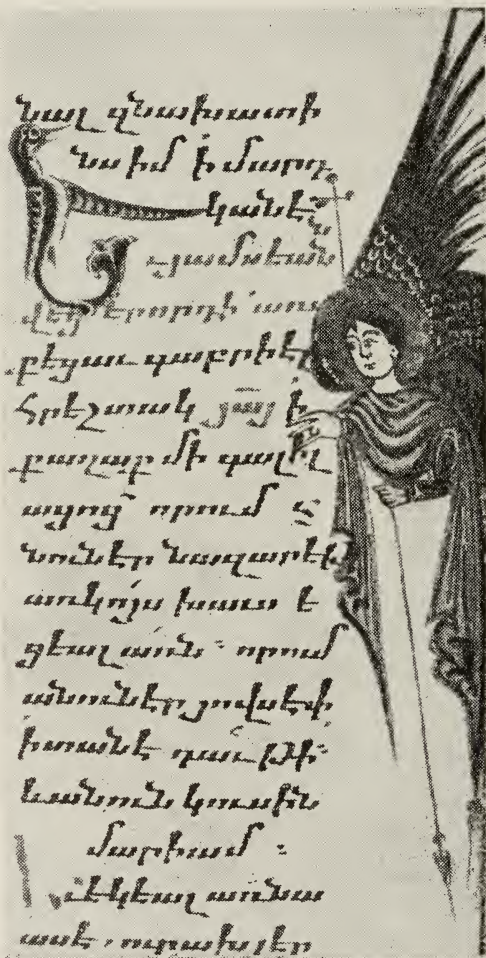 նալ զնախատի
նս իմ ի մարդ
կանէ
յամսեան
վեցերորդի առա
քեցաւ գաբրիէլ
հրեշտակ յա՟յ ի
քաղաք մի գալիլ
ացոց որում
նուն էր նազարէթ
առ կոյս խաւս ե
ցեալ առն ։ որում
անուն էր յովսէփ
ի տանէ դաւթի ։
և անուն կուսին
մարիամ ։
եկեալ առ նա
ասէ . ուրախ լեր